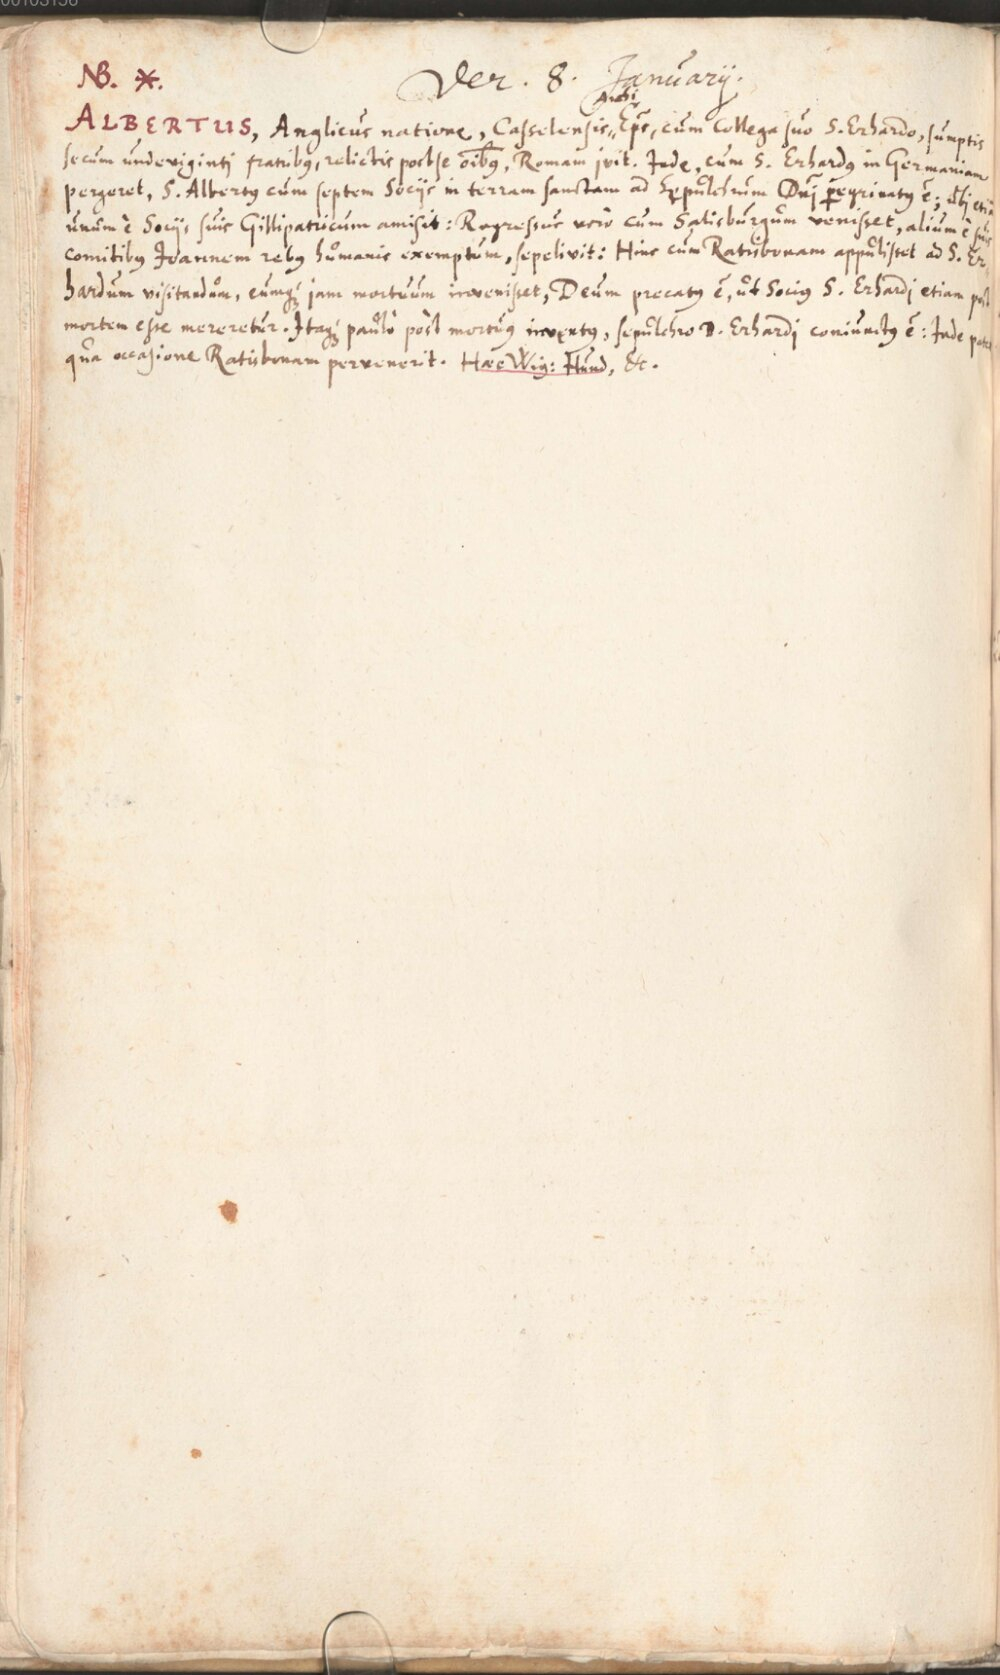 00103156
NB. *.
Der . 8. Januarij.
Archi
ALBERTUS, Anglicus natione, Casselensis,, Ep͠s, cum Collega suo S. Erhardo, sumptis
secum undeviginti fratribꝰ, relictis post se oi͠bꝰ, Romam ivit. Inde, cum S. Erhardꝰ in Germaniam
pergeret, S. Albertꝰ cum septem Socijs in terram sanctam ad Sepulchrum Dn͠j peregrinatꝰ ē; ubj etiā
unum è Socijs suis Gillipatricum amisit: Regressus verò cum Salisburgum venisset, alium è suis
comitibꝰ Joannem rebꝰ humanis exemptum, sepelivit: Hinc cum Ratisbonam appulisset ad S. Er,
hardum visitandum, eumq́ꝫ jam mortuum invenisset, Deum precatꝰ ē, ut Sociꝰ S. Erhardj etiam post
mortem esse mereretur. Itaq́ꝫ paulò pòst mortuꝰ inventꝰ, sepulchro D. Erhardj coniunctꝰ ē: Inde patet
qua occasione Ratisbonam pervenerit. Haec Wig: Hund, &c.